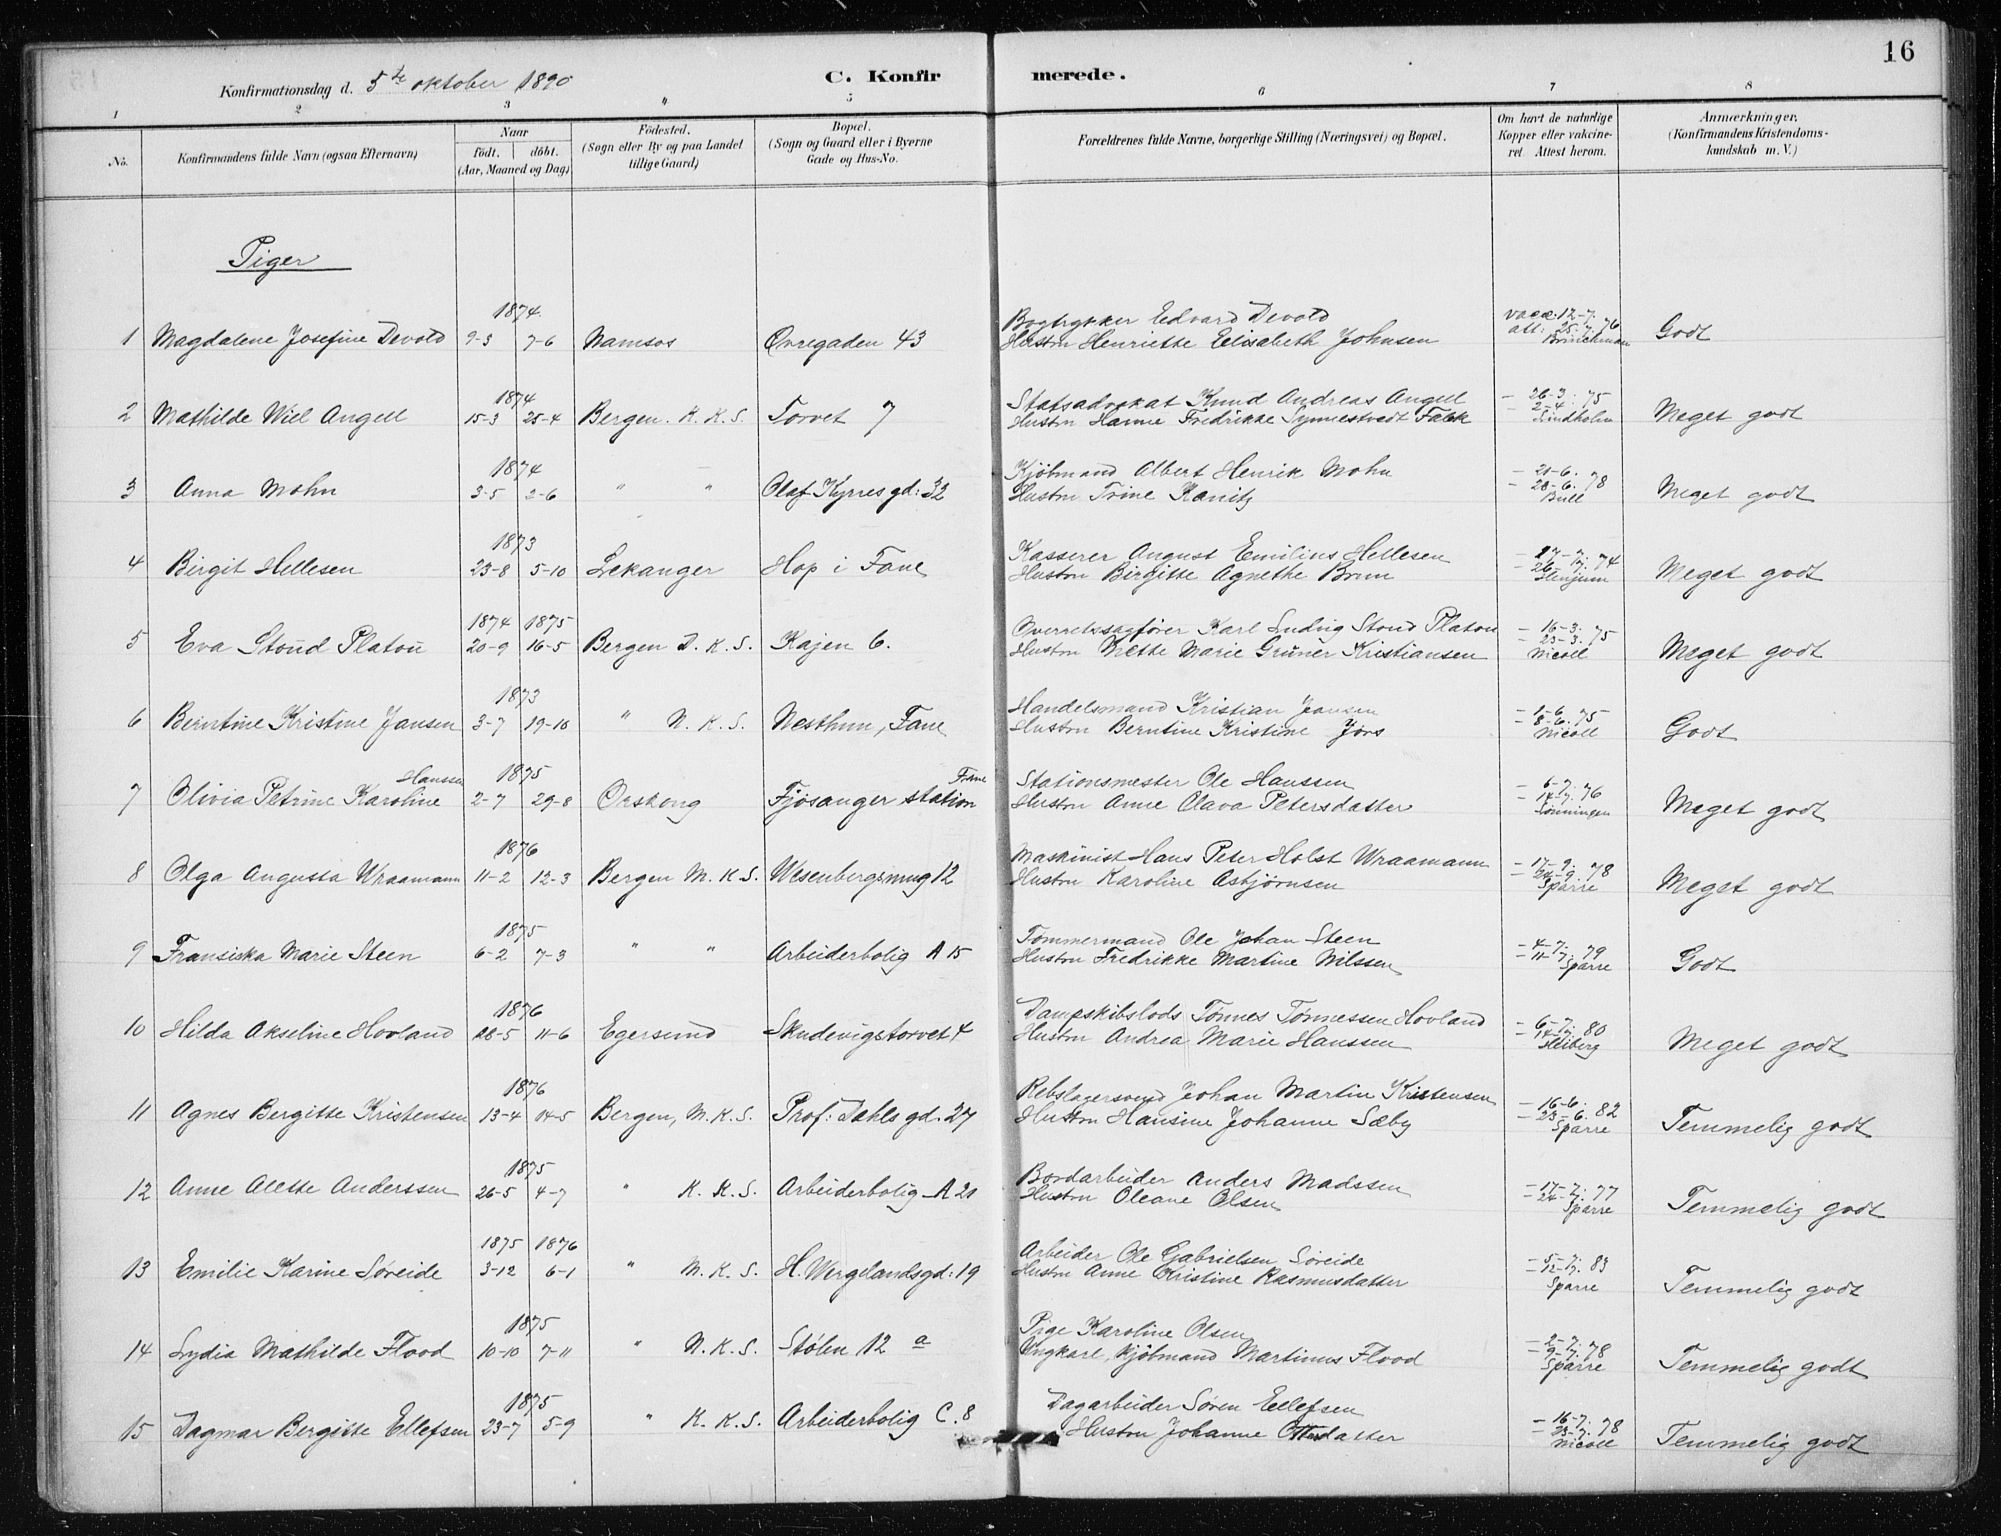 16
Konfirmationsdag d. 5te oktober 1890
C. Konfirmerede.
1 2 3 4 5 6 7 8
No.
Konfirmandens fulde Navn (ogsaa Efternavn)
Naar
födt. döbt.
(Aar, Maaned og Dag)
Födested.
(Sogn eller By og paa Landet
tillige Gaard)
Bopæl.
(Sogn og Gaard eller i Byerne
Gade og Hus-No.
Forældrenes fulde Navne, borgerlige Stilling (Næringsvei) og Bopæl.
Om havt de naturlige
Kopper eller vakcine-
ret. Attest herom.
Anmærkninger.
(Konfirmandens Kristendoms-
kundskab m. V.)
Piger
1874
1 Magdalene Josefine Devold 9-3 7-6 Namsos Øvregaden 43
Bogtrykker Edvard Devold
Hustru Henriette Elisabeth Johnsen
vacc: 12-7.
att: 25-7. 76
Brinchman
Godt
1874
2 Mathilde Wiel Angell 15-3 25-4 Bergen. K. K. S. Torvet 7
Statsadvokat Knud Andreas Angell
Hustru Hanne Fredrikke Synnestvedt Falck
- 26-3. 75
- 2-4.
Lindholm
Meget godt
1874
3 Anna Mohn 3-5 2-6 " " Olaf Kyrres gd: 32
Kjøbmand Albert Henrik Mohn
Hustru Trine Kanitz
- 20-6.
- 28-6. 78
Bull
Meget godt
1873
4 Birgit Hellesen 23-8 5-10 Lekanger Hop i Fane
Kasserer August Emilius Hellesen
Hustru Birgitte Agnethe Brun
- 17-7. 74
- 26-7.
Meget godt
1874 1875
5 Eva Stoud Platou 20-9 16-5 Bergen D. K. S. Kajen 6.
Overretssagfører Karl Ludvig Stoud Platou
Hustru Mette Marie Grüner Kristiansen
- 16-3.
- 23-3. 75
Nicoll
Meget godt
1873
6 Berntine Kristine Jansen 3-7 19-10 " N. K. S. Nesthun, Fane
Handelsmand Kristian Jansen
Hustru Berntine Kristine Jørs
- 1-6.
- 8-6. 75
Nicoll
Godt
Hanssen 1875 Fane
7 Olivia Petrine Karoline 2-7 29-8 Orskoug Fjøsanger station
Stationsmester Ole Hanssen
Hustru Anne Olava Petersdatter
- 6-7. 76
- 14-7.
Meget godt
1876
8 Olga Augusta Wraamann 11-2 12-3 Bergen M. K. S. Wesenbergsmug 12
Maskinist Hans Peter Holst Wraamann
Hustru Karoline Asbjørnsen
- 17-9.
- 24-9. 78
Sparre
Meget godt
1875
9 Fransiska Marie Steen 6-2 7-3 " " Arbeiderbolig A 15
Tømmermand Ole Johan Steen
Hustru Fredrikke Martine Nilssen
- 4-7. 79
- 11-7.
Sparre
Godt
1876
10 Hilda Akseline Hovland 28-5 11-6 Egersund Skudevigstorvet 4
Dampskibslods Tønnes Tønnessen Hovland
Hustru Andrea Marie Hanssen
- 6-7. 80
- 14-7.
Heiberg
Meget godt
1876
11 Agnes Bergitte Kristensen 13-4 14-5 Bergen, M. K. S. Prof: Dahls gd. 27
Rebslagersvend Johan Martin Kristensen
Hustru Hansine Johanne Sæby
- 16-6.
- 23-6. 82
Sparre
Temmelig godt
1875
12 Anne Alette Anderssen 26-5 4-7 " K. K. S. Arbeiderbolig A 21
Bordarbeider Anders Madssen
Hustru Oleane Olsen
- 17-7. 77
- 24-7.
Sparre
Temmelig godt
1875 1876
13 Emilie Karine Søreide 3-12 6-1 " M. K. S. H. Wergelandsgd: 19
Arbeider Ole Gabrielsen Søreide
Hustru Anne Christine Rasmusdatter
- 5-7. 83
- 12-7.
Sparre
Temmelig godt
1875
14 Lydia Mathilde Flood 10-10 7-11 " N. K. S. Stølen 12 a
Pige Karoline Olsen
Ungkarl, kjøbmand Martinus Flood
- 2-7. 78
- 9-7.
Sparre
Temmelig godt
1875
15 Dagmar Bergitte Ellefsen 23-7 5-9 " K. K. S. Arbeiderbolig C. 8
Dagarbeider Søren Ellefsen
Hustru Johanne Ottesdatter
- 16-7. 78
- 23-7.
Nicoll
Temmelig godt